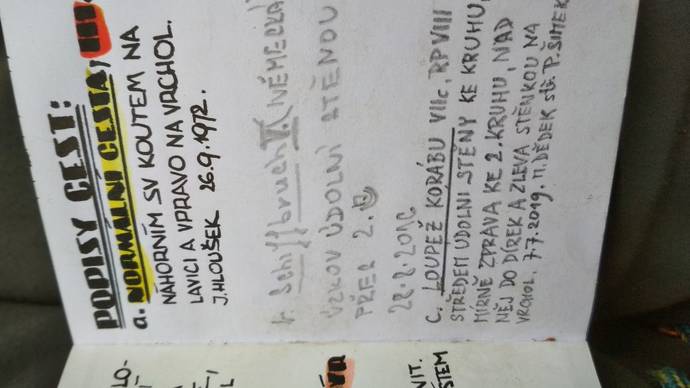 POPISY CEST:
a. NORMÁLNÍ CESTA, III.
NÁHORNÍM SV KOUTEM NA
LAVICI A VPRAVO NA VRCHOL.
J. HLOUŠEK 26.9.1972.
b. Schiffbruch V. (NĚMECKÁ)
ÚZKOU ÚDOLNÍ STĚNOU
PŘES 2.
28.8.2016
C. LOUPEŽ KORÁBU VIIc, RP VIII
STŘEDEM ÚDOLNÍ STĚNY KE KRUHU,
MÍRNĚ ZPRAVA KE 2. KRUHU, NAD
NĚJ DO DÍREK A ZLEVA STĚNKOU NA
VRCHOL. 7.7.2019. M. DĚDEK str. P. ŠIMEK
LO-
VIT.
ŠTEM